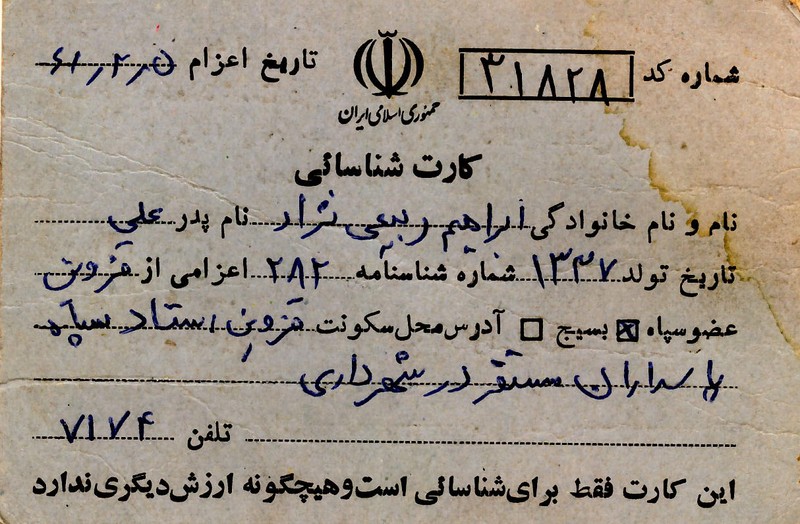 شماره کد ۳۱۸۲۸ تاریخ اعزام ۶۱٫۲٫۵
جمهوری اسلامی ایران
کارت شناسائی
نام و نام خانوادگی ابراهیم ربیعی نژاد نام پدر علی
تاریخ تولد ۱۳۳۷ شماره شناسنامه ۲۸۲ اعزامی از قزوین
عضو سپاه ☒ بسیج ☐ آدرس محل سکونت قزوین ستاد سپاه
پاسداران مستقر در شهرداری
تلفن ۷۱۷۴
این کارت فقط برای شناسائی است و هیچگونه ارزش دیگری ندارد